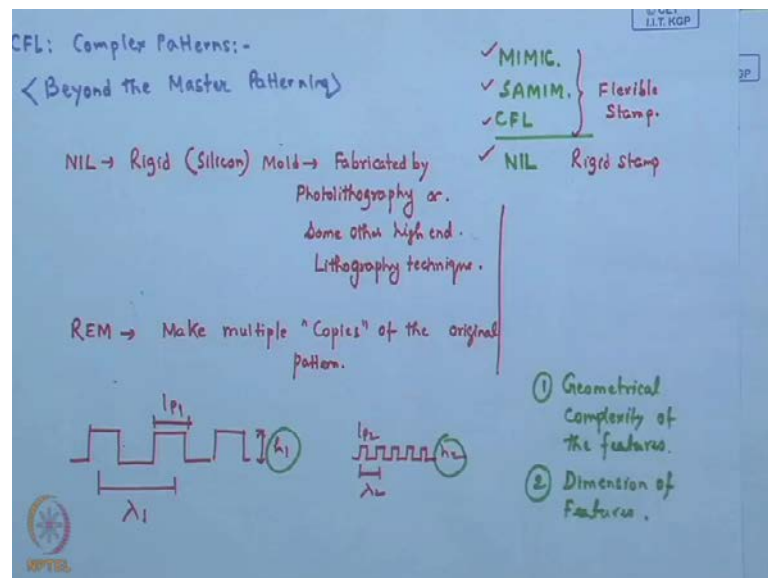 © CET
I.I.T. KGP
CFL: Complex Patterns:-
<Beyond the Master Patterning>
MIMIC.
SAMIM.
CFL
Flexible
Stamp.
NIL Rigid Stamp
NIL → Rigid (Silicon) Mold → Fabricated by
Photolithography or.
Some other high end.
Lithography technique.
REM → Make multiple "Copies" of the original
pattern.
lP1
h1
λ1
lP2
h2
λ2
① Geometrical
Complexity of
the features.
② Dimension of
Features.
NPTEL